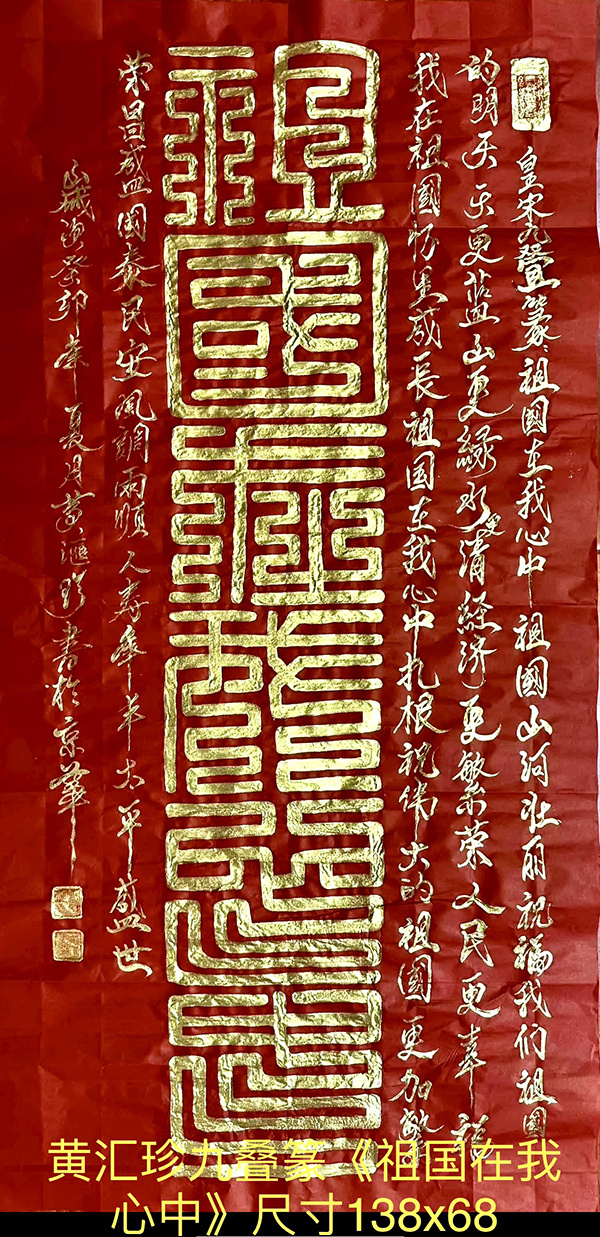 皇宋九疊篆：祖國在我心中祖國山河壮丽祝福我们祖国
的明天天更蓝山更緑水更清經济更繁荣人民更幸福
我在祖國怀里成長祖国在我心中扎根祝伟大的祖國更加繁
祖國在我心中
荣昌盛国泰民安風調雨順人寿年丰太平盛世
癸卯年夏月黄滙珍書於京華
黄汇珍九叠篆《祖国在我
心中》尺寸138x68